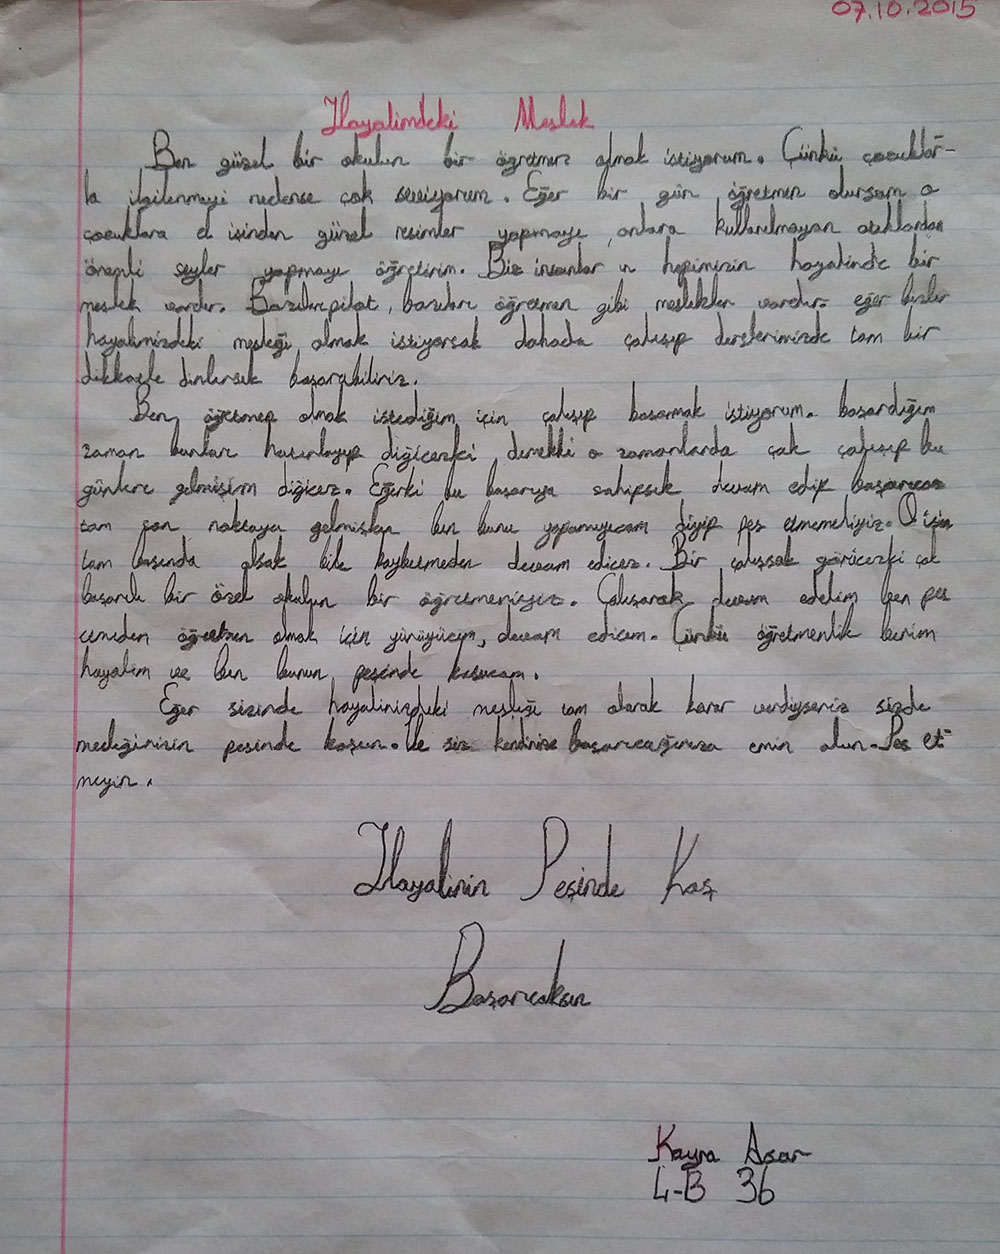 07.10.2015
Hayalimdeki Meslek
Ben güzel bir okulun bir öğretmeni olmak istiyorum. Çünkü çocuklar-
la ilgilenmeyi nedense çok seviyorum. Eğer bir gün öğretmen olursam o
çocuklara el işinden güzel resimler yapmayı, onlara kullanılmayan atıklardan
önemli şeyler yapmayı öğretirim. Biz insanlar ın hepimizin hayalinde bir
meslek vardır. Bazıları pilot, bazıları öğretmen gibi meslekler vardır. eğer bizler
hayalimizdeki mesleği olmak istiyorsak dahada çalışıp derslerimizde tam bir
dikkatle dinlersek başarabiliriz.
Ben öğretmen olmak istediğim için çalışıp başarmak istiyorum. başardığım
zaman bunları hatırlayıp diğicezki demekki o zamanlarda çok çalışıp bu
günlere gelmişim diğicez. Eğerki bu başarıya sahipsek devam edip
tam son noktaya gelmişken ben bunu yapamıyıcam diyip pes etmemeliyiz. O işin
tam başında olsak bile kaybetmeden devam edicez. Bir çalışsak görücezki çok
başarılı bir özel okulun bir öğretmeniyiz. Çalışarak devam edelim ben pes
etmeden öğretmen olmak için yürüyücem, devam edicem. Çünkü öğretmenlik benim
hayalim ve ben bunun peşinde koşucam.
Eğer sizinde hayalinizdeki mesleği tam olarak karar verdiyseniz sizde
mesleğinizin peşinde koşun. Ve siz kendinize başarıcağınıza emin olun. Pes et-
meyin.
Hayalinin Peşinde Koş
Başarıcaksın
Kayra Acar
4-B 36